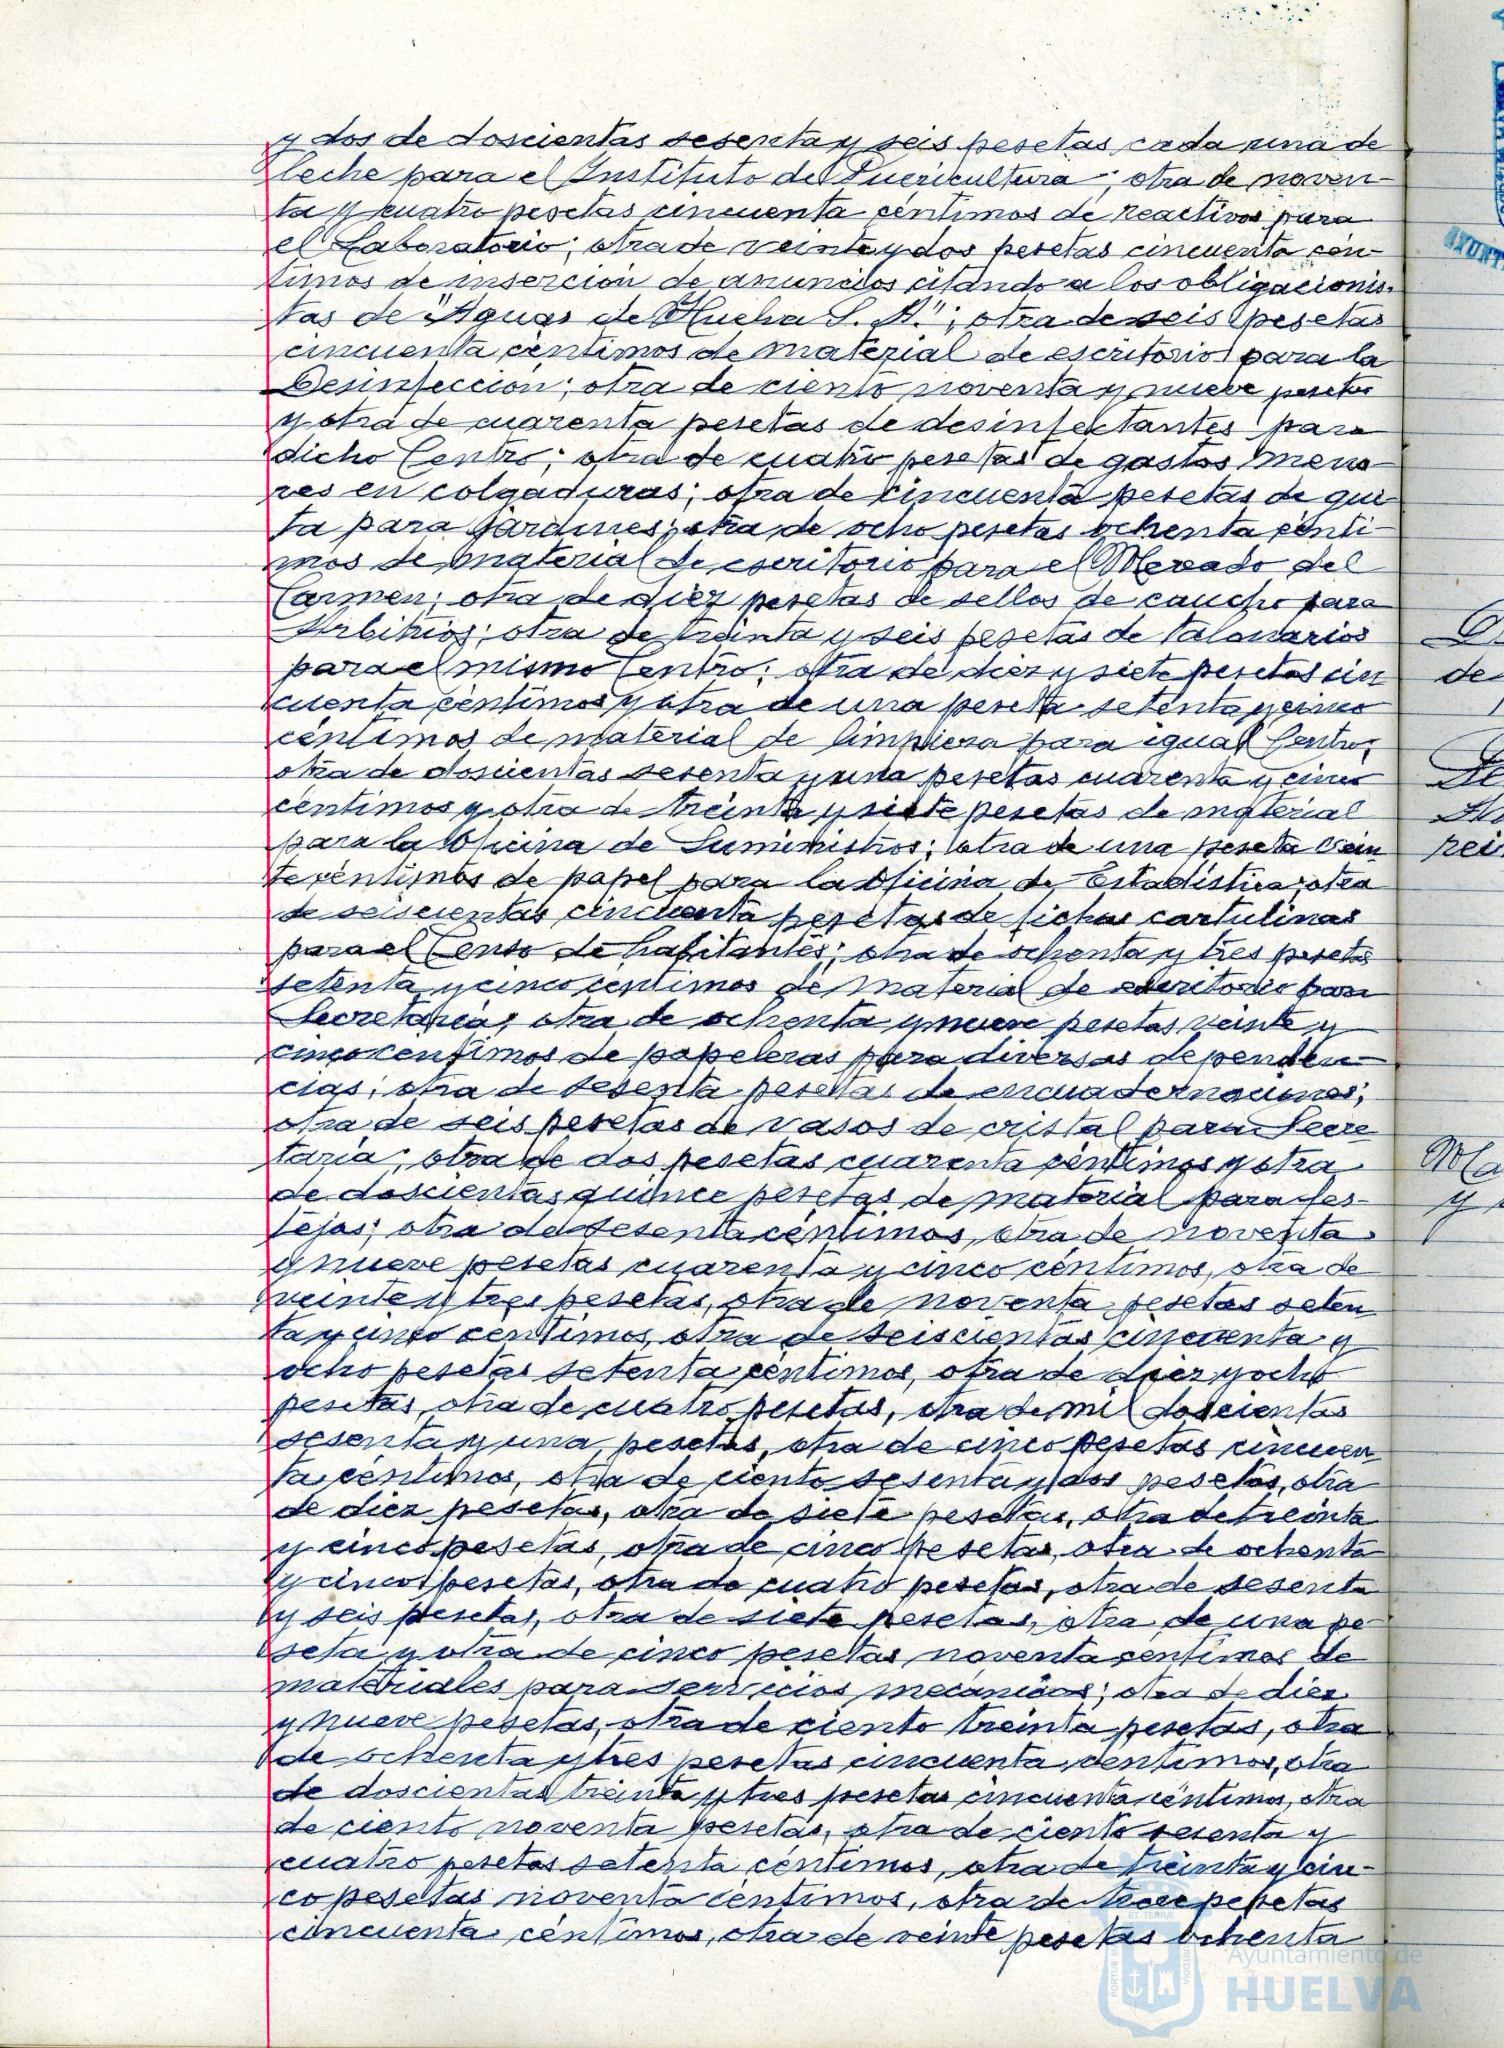 y dos de doscientas sesenta y seis pesetas cada una de
leche para el Instituto de Puericultura; otra de noven-
ta y cuatro pesetas cincuenta céntimos de reactivos para
el Laboratorio; otra de veinte y dos pesetas cincuenta cén-
timos de inserción de anuncios citando a los obligacionis-
tas de "Aguas de Huelva S. A."; otra de seis pesetas
cincuenta céntimos de material de escritorio para la
Desinfección; otra de ciento noventa y nueve pesetas
y otra de cuarenta pesetas de desinfectantes para
dicho Centro; otra de cuatro pesetas de gastos meno-
res en colgaduras; otra de cincuenta pesetas de
ta para Jardines; otra de ocho pesetas ochenta cénti-
mos de material de escritorio para el Mercado del
Carmen; otra de diez pesetas de sellos de caucho para
Arbitrios; otra de treinta y seis pesetas de talonarios
para el mismo Centro; otra de diez y siete pesetas cin
cuenta céntimos y otra de una peseta setenta y cinco
céntimos de material de limpieza para igual Centro;
otra de doscientas sesenta y una pesetas cuarenta y cinco
céntimos y otra de treinta y siete pesetas de material
para la Oficina de Suministros; otra de una peseta vein
te céntimos de papel para la Oficina de Estadística; otra
de seiscientas cincuenta pesetas de fichas cartulinas
para el Censo de habitantes; otra de ochenta y tres pesetas
setenta y cinco centimos de material de escritorio para
Secretaría; otra de ochenta y nueve pesetas veinte y
cinco centimos de papeleras para diversas dependen-
cias; otra de sesenta pesetas de encuadernaciones;
otra de seis pesetas de vasos de cristal para Secre
taría; otra de dos pesetas cuarenta céntimos y otra
de doscientas quince pesetas de material para fes-
tejos; otra de sesenta céntimos, otra de noventa
y nueve pesetas cuarenta y cinco céntimos, otra de
veinte y tres pesetas, otra de noventa pesetas seten
ta y cinco centimos, otra de seiscientas cincuenta y
ocho pesetas setenta céntimos, otra de diez y ocho
pesetas, otra de cuatro pesetas, otra de mil doscientas
sesenta y una pesetas, otra de cinco pesetas cincuen
ta céntimos, otra de ciento sesenta y dos pesetas, otra
de diez pesetas, otra de siete pesetas, otra de treinta
y cinco pesetas, otra de cinco pesetas, otra de ochenta
y cinco pesetas, otra de cuatro pesetas, otra de sesenta
y seis pesetas, otra de siete pesetas, otra de una pe-
seta y otra de cinco pesetas noventa céntimos de
materiales para servicios mecanicos; otra de diez
y nueve pesetas, otra de ciento treinta pesetas, otra
de ochenta y tres pesetas cincuenta centimos, otra
de doscientas treinta y tres pesetas cincuenta céntimos, otra
de ciento noventa pesetas, otra de ciento sesenta y
cuatro pesetas setenta céntimos, otra de treinta y cin-
co pesetas noventa céntimos, otra de trece pesetas
cincuenta céntimos, otra de veinte pesetas ochenta
Ayuntamiento de
HUELVA